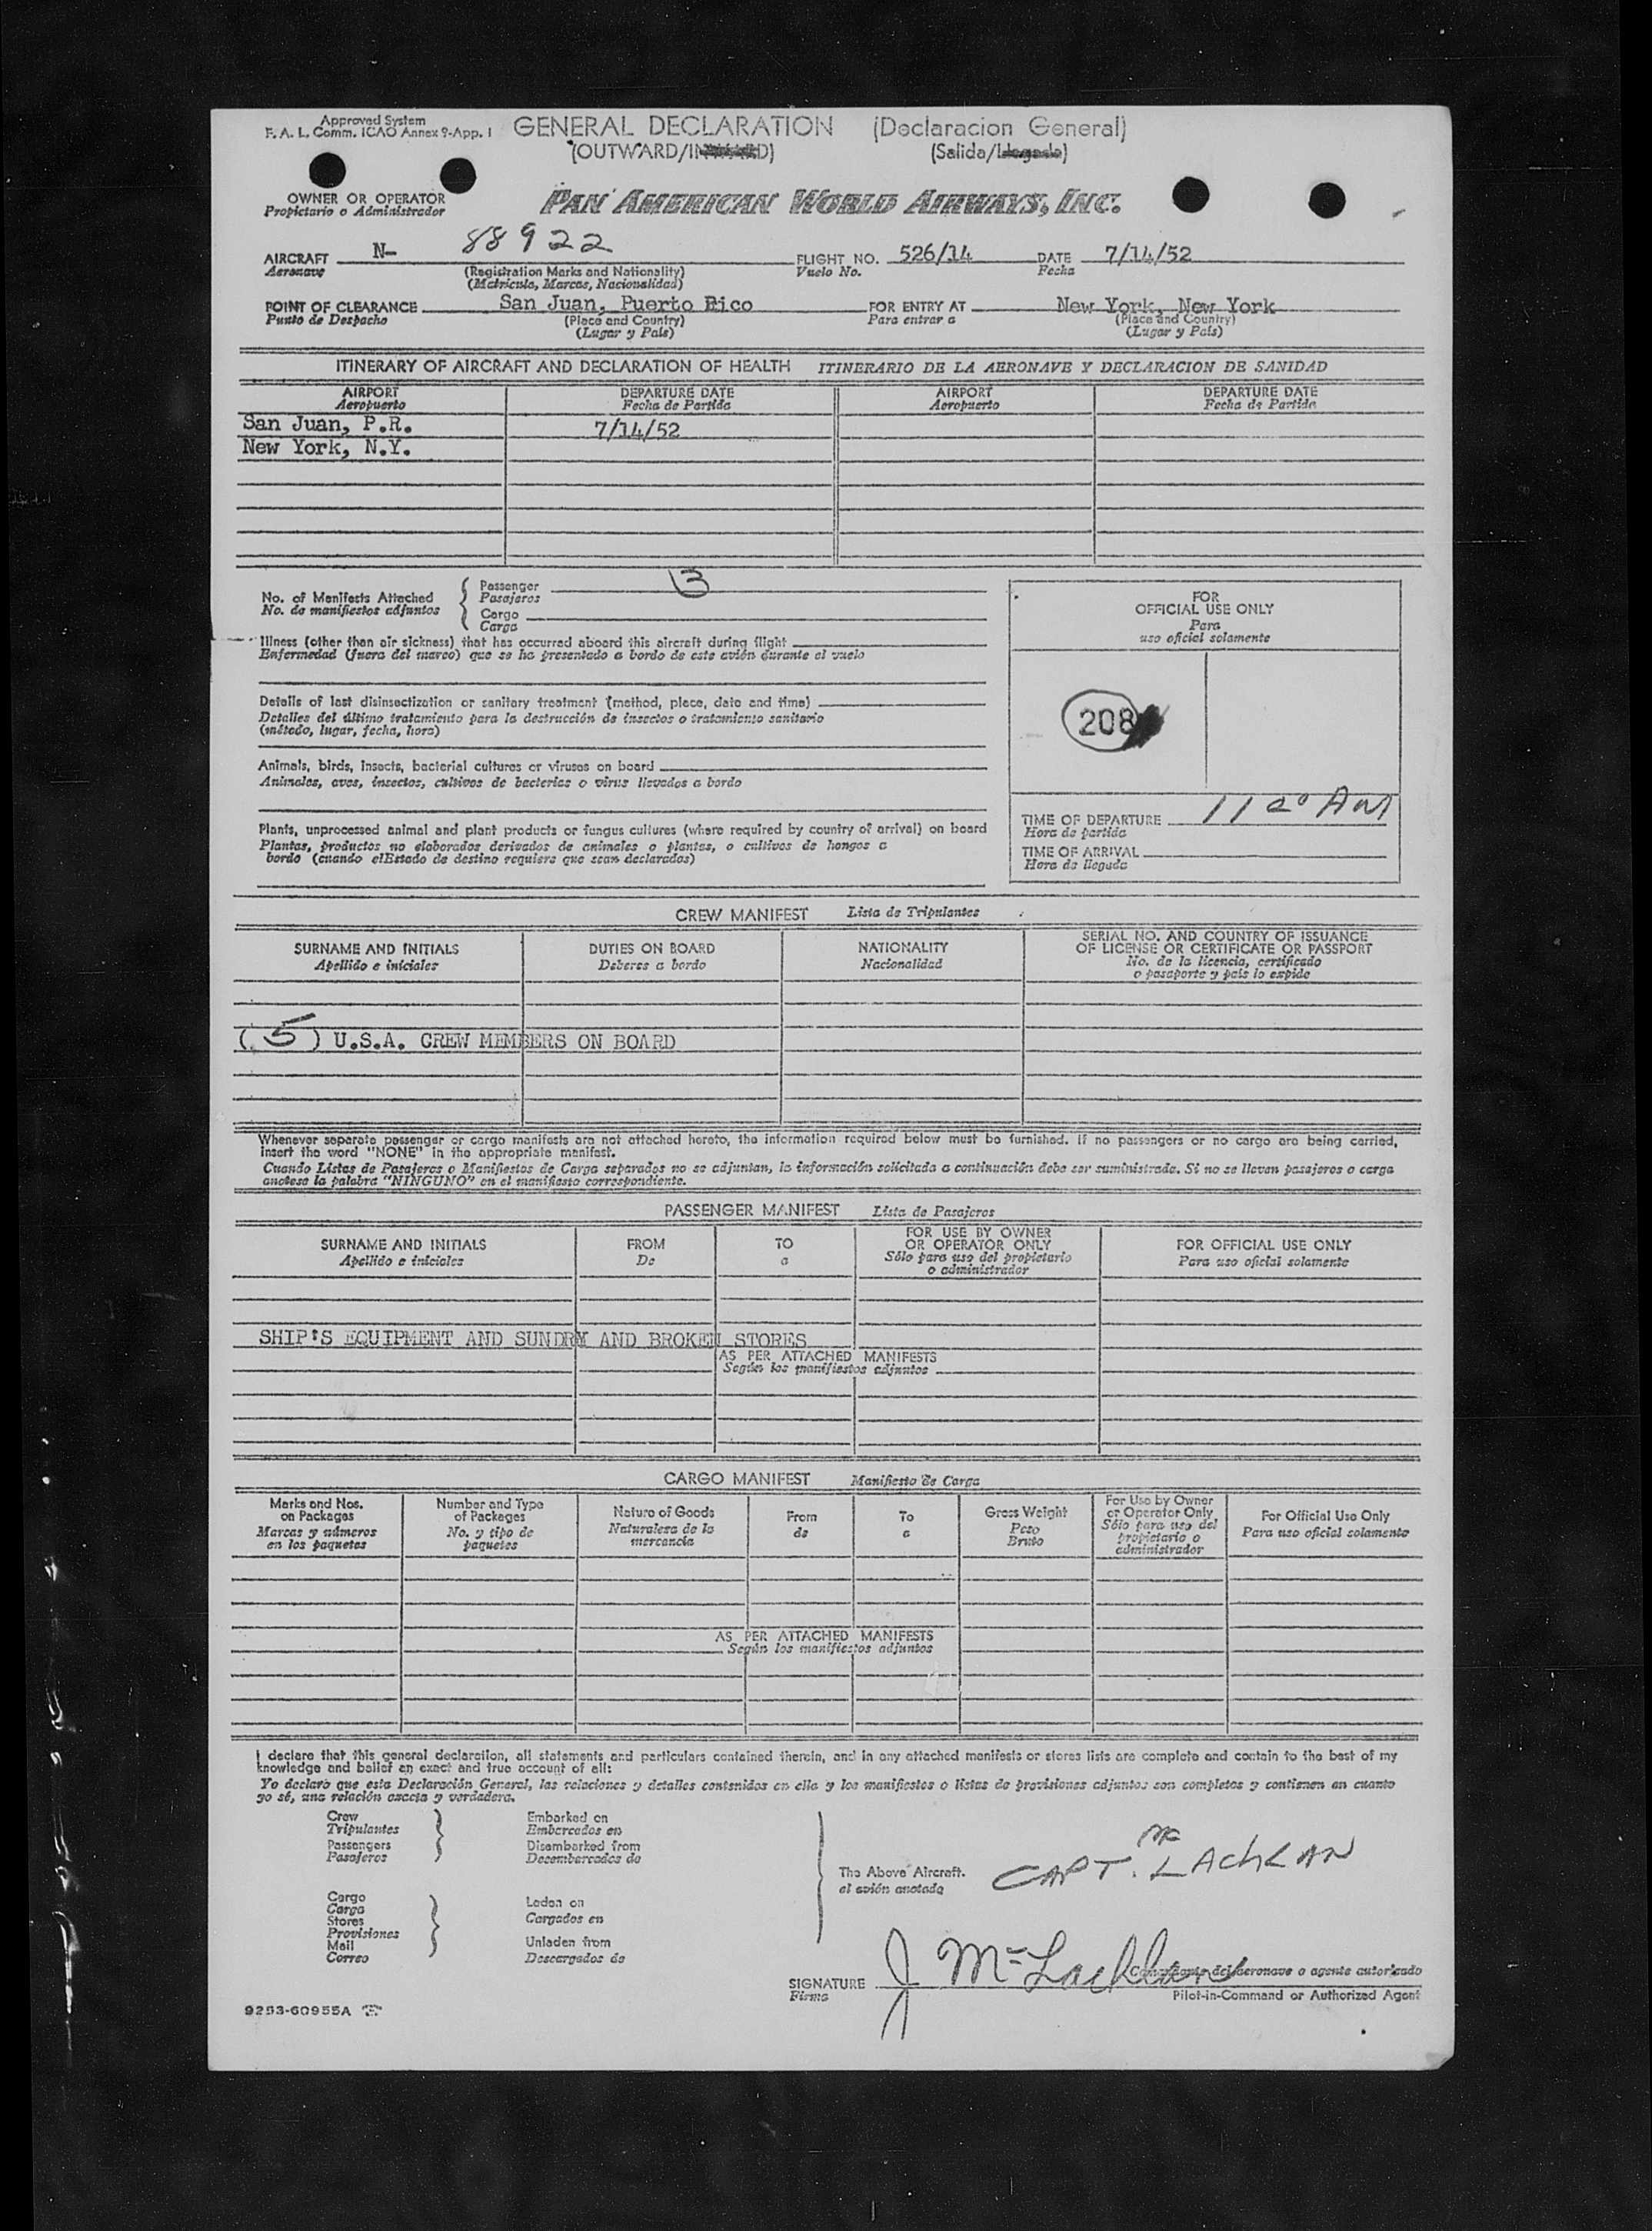 Approved System
F. A. L. Comm. ICAO Annex 9-App. I
GENERAL DECLARATION (Declaracion General)
(OUTWARD/INWARD) (Salida/Llegada)
OWNER OR OPERATOR
Propietario o Administrador
PAN AMERICAN WORLD AIRWAYS, INC.
AIRCRAFT N- 88922 FLIGHT NO. 526/14 DATE 7/14/52
Aeronave (Registration Marks and Nationality) Vuelo No. Fecha
(Matricula, Marcas, Nacionalidad)
POINT OF CLEARANCE San Juan, Puerto Rico FOR ENTRY AT New York, New York
Punto de Despacho (Place and Country) Para entrar a (Place and Country)
(Lugar y País) (Lugar y País)
ITINERARY OF AIRCRAFT AND DECLARATION OF HEALTH ITINERARIO DE LA AERONAVE Y DECLARACION DE SANIDAD
AIRPORT DEPARTURE DATE AIRPORT DEPARTURE DATE
Aeropuerto Fecha de Partida Aeropuerto Fecha de Partida
San Juan, P.R. 7/14/52
New York, N.Y.
No. of Manifests Attached
No. de manifiestos adjuntos
Passenger 3
Pasajeros
Cargo
Carga
Illness (other than air sickness) that has occurred aboard this aircraft during flight
Enfermedad (fuera del mareo) que se ha presentado a bordo de este avión durante el vuelo
Details of last disinsectization or sanitary treatment (method, place, date and time)
Detalles del último tratamiento para la destrucción de insectos o tratamiento sanitario
(método, lugar, fecha, hora)
Animals, birds, insects, bacterial cultures or viruses on board
Animales, aves, insectos, cultivos de bacterias o virus llevados a bordo
Plants, unprocessed animal and plant products or fungus cultures (where required by country of arrival) on board
Plantas, productos no elaborados derivados de animales o plantas, o cultivos de hongos a
bordo (cuando elEstado de destino requiera que sean declarados)
FOR
OFFICIAL USE ONLY
Para
uso oficial solamente
208
TIME OF DEPARTURE 11 20 AM
Hora de partida
TIME OF ARRIVAL
Hora de llegada
CREW MANIFEST Lista de Tripulantes
SURNAME AND INITIALS DUTIES ON BOARD NATIONALITY SERIAL NO. AND COUNTRY OF ISSUANCE
OF LICENSE OR CERTIFICATE OR PASSPORT
Apellido e iniciales Deberes a bordo Nacionalidad No. de la licencia, certificado
o pasaporte y país lo expide
( 5 ) U.S.A. CREW MEMBERS ON BOARD
Whenever separate passenger or cargo manifests are not attached hereto, the information required below must be furnished. If no passengers or no cargo are being carried,
insert the word "NONE" in the appropriate manifest.
Cuando Listas de Pasajeros o Manifiestos de Carga separados no se adjuntan, la información solicitada a continuación debe ser suministrada. Si no se llevan pasajeros o carga
anotese la palabra "NINGUNO" en el manifiesto correspondiente.
PASSENGER MANIFEST Lista de Pasajeros
SURNAME AND INITIALS FROM TO FOR USE BY OWNER
OR OPERATOR ONLY FOR OFFICIAL USE ONLY
Apellido e iniciales De a Sólo para uso del propietario
o administrador Para uso oficial solamente
SHIP'S EQUIPMENT AND SUNDRY AND BROKEN STORES
AS PER ATTACHED MANIFESTS
Según los manifiestos adjuntos
CARGO MANIFEST Manifiesto de Carga
Marks and Nos.
on Packages
Marcas y números
en los paquetes
Number and Type
of Packages
No. y tipo de
paquetes
Nature of Goods
Naturaleza de la
mercancía
From
de
To
a
Gross Weight
Peso
Bruto
For Use by Owner
or Operator Only
Sólo para uso del
propietario o
administrador
For Official Use Only
Para uso oficial solamente
AS PER ATTACHED MANIFESTS
Según los manifiestos adjuntos
I declare that this general declaration, all statements and particulars contained therein, and in any attached manifests or stores lists are complete and contain to the best of my
knowledge and belief an exact and true account of all:
Yo declaro que esta Declaración General, las relaciones y detalles contenidos en ella y los manifiestos o listas de provisiones adjuntos son completos y contienen en cuanto
yo sé, una relación exacta y verdadera.
Crew
Tripulantes
Passengers
Pasajeros
Embarked on
Embarcados en
Disembarked from
Desembarcados de
Cargo
Carga
Stores
Provisiones
Mail
Correo
Laden on
Cargados en
Unladen from
Descargados de
The Above Aircraft.
el avión anotado
CAPT. Mc LACHLAN
SIGNATURE J McLachlan
Firma
Comandante del aeronave o agente autorizado
Pilot-in-Command or Authorized Agent
9253-60955A